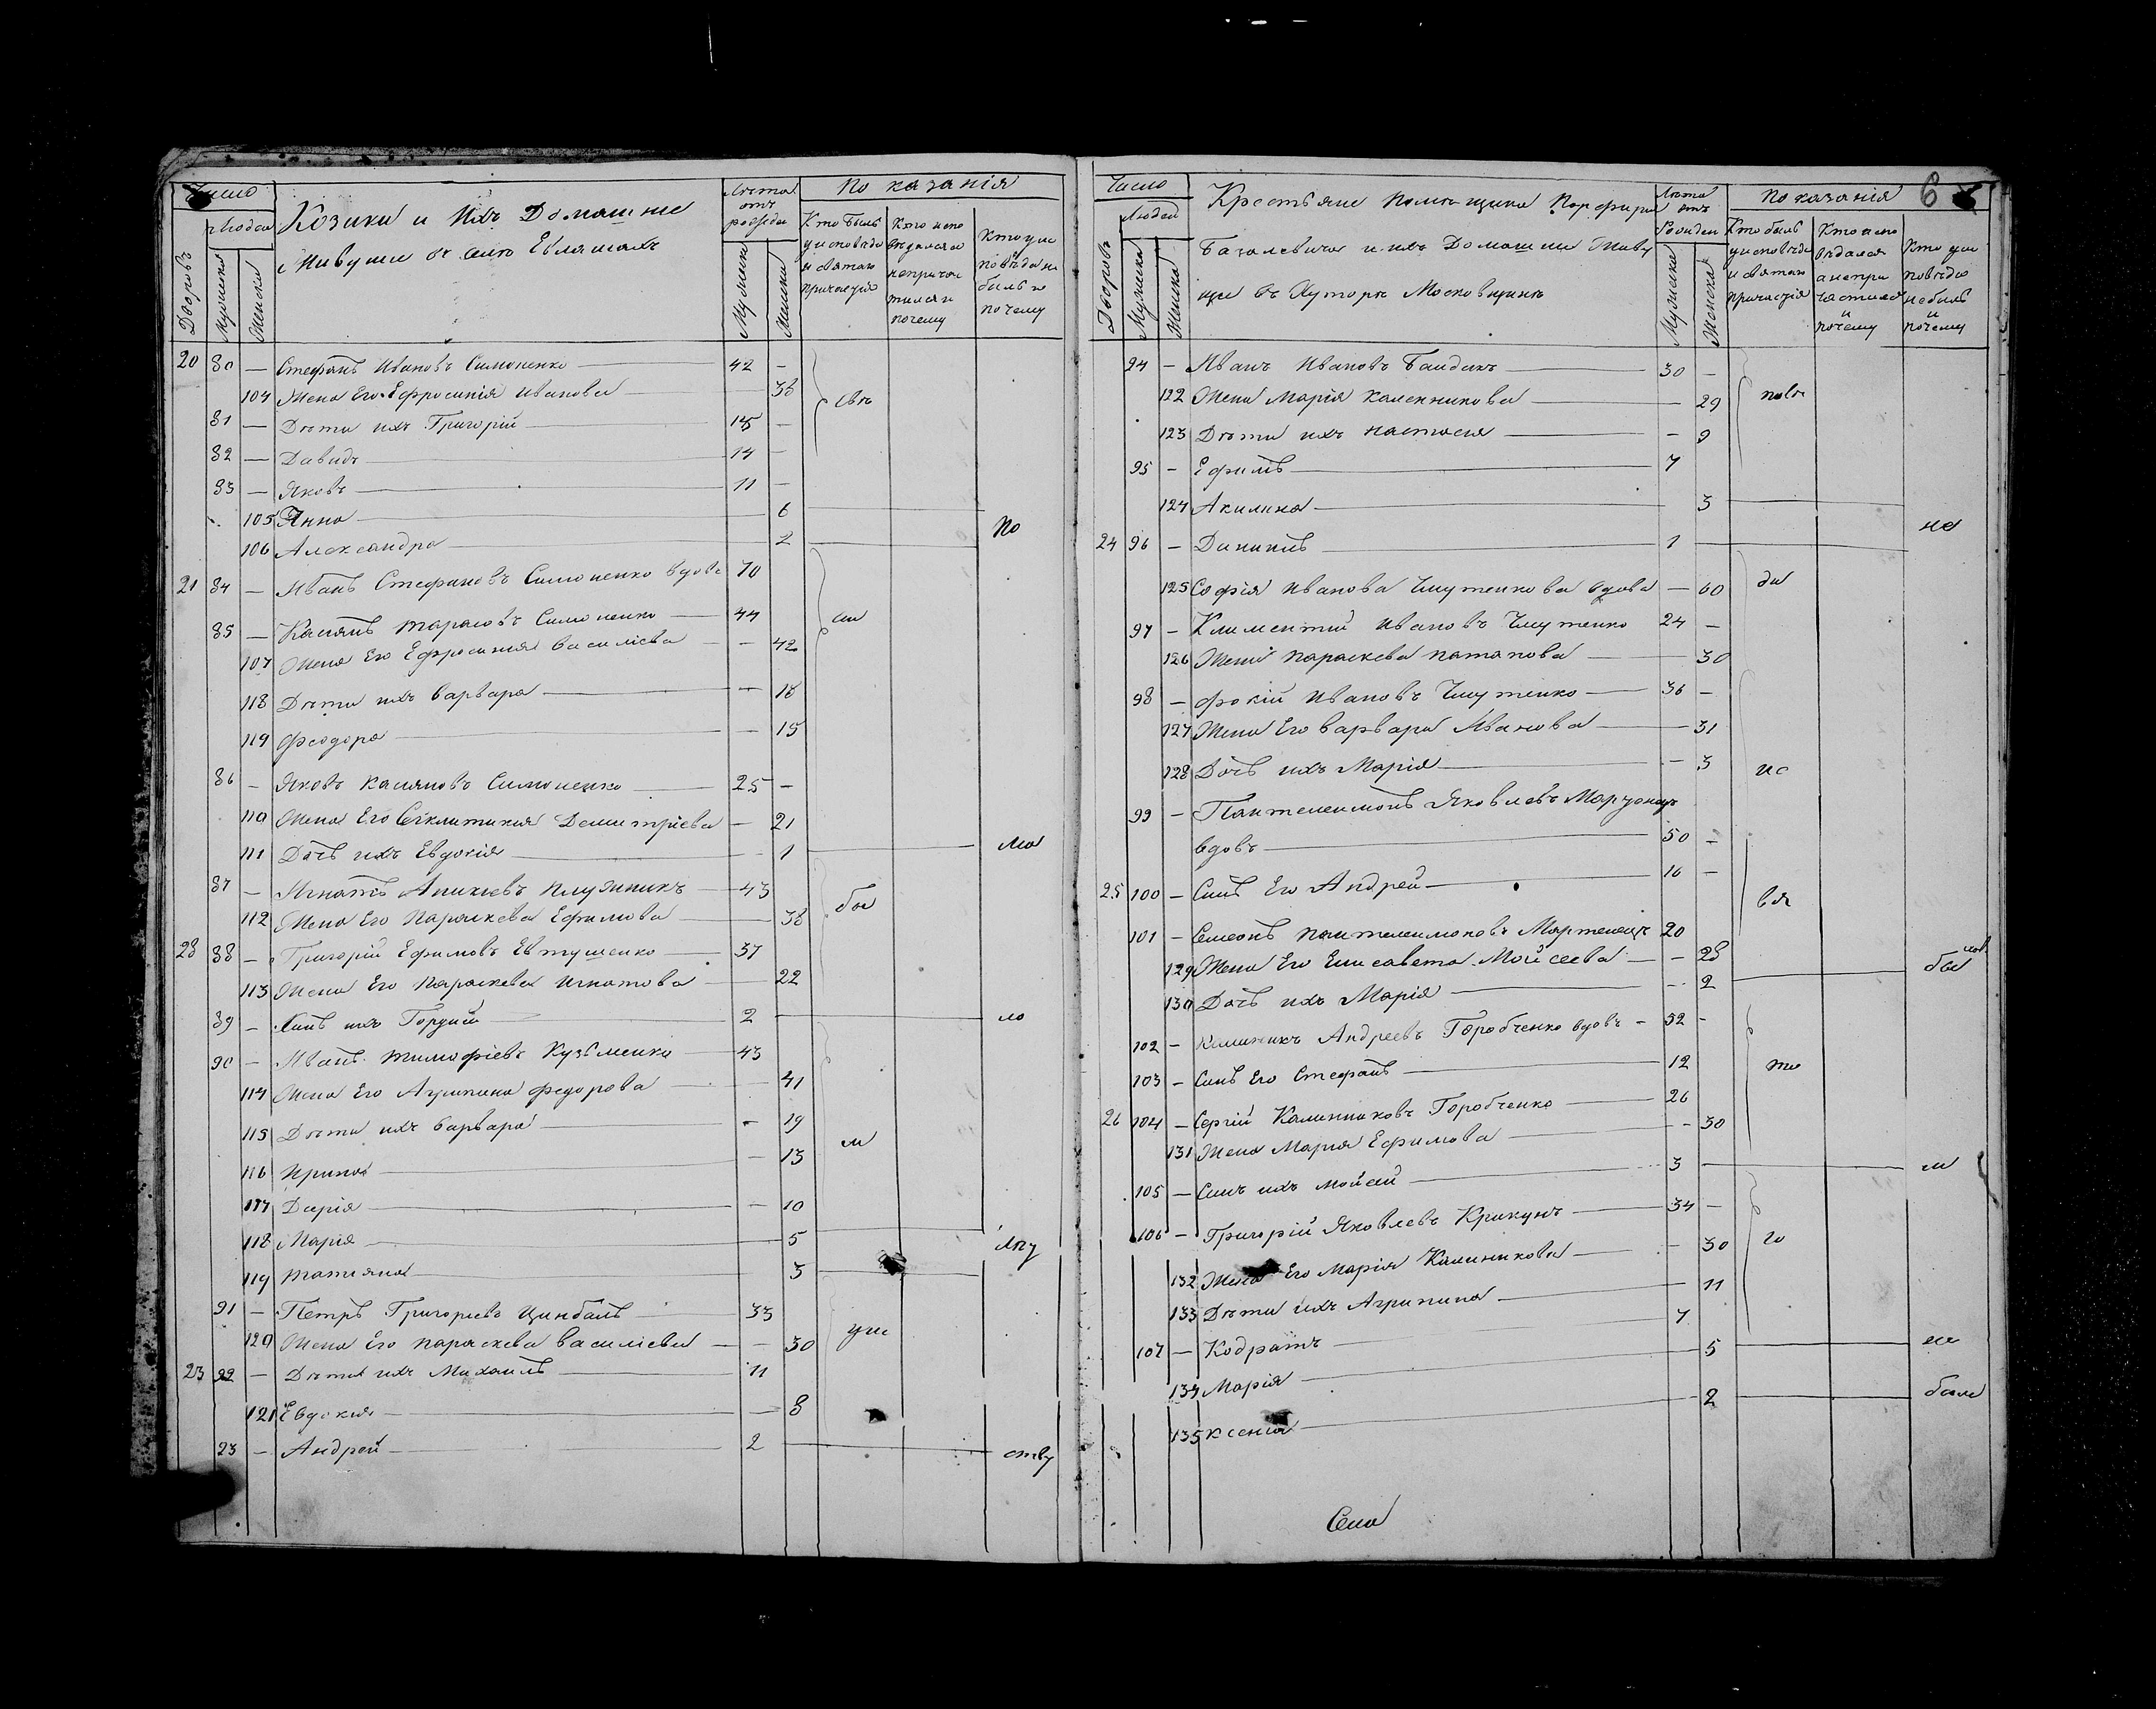 Число
Людей
Дворовъ
Мужеска
Женска
Козаки и Ихъ Домашне
Живущи въ селе Евлашахъ
Лета
отъ
рождения
Мужеска
Женска
Показанія
Кто былъ
у исповеди
и святаго
причастія
Кто испо
ведался а
непричас
тился и
почему
Кто у ис
поведи не
былъ и
почему
20 80 — Стефанъ Ивановъ Симоненко — 42 —
104 Жена Его Ефросинія Иванова — 38
81 — Дети ихъ Григорій — 15 —
82 — Давидъ — 14 —
83 — Яковъ — 11 —
105 Анна — 6
106 Александра — 2
21 84 — Иванъ Стефановъ Симоненко вдовъ 70
85 — Касянъ Тарасовъ Симоненко — 44
107 Жена Его Ефросиния Василіева — 42
118 Дети ихъ Варвара — 18
119 Феодора — 15
86 — Яковъ Касяновъ Симоненко — 25 —
110 Жена Его Секлитикия Демитріева — 21
111 Дочь ихъ Евдокія — 1
87 — Игнатъ Аникіевъ Плужникъ — 43
112 Жена Его Параскева Ефимова — 38
28 88 — Григорій Ефимовъ Евтушенко — 37
113 Жена Его Параскева Игнатова — 22
89 — Синъ ихъ Гордий — 2
90 — Иванъ Тимофіевъ Кузьменко — 43
114 Жена Его Агрипина Федорова 41
115 Дети ихъ Варвара — 19
116 Ирина — 13
117 Дарія — 10
118 Марія — 5
119 Татияна — 3
91 — Петръ Григориевъ Цинбалъ — 33
120 Жена Его Параскева Василіева — 30
23 92 — Дети ихъ Михаилъ — 11
121 Евдокия — 8
23 — Андрей — 2
по
ли
ма
бы
ло
ли
ству
Число
Людей
Дворовъ
Мужеска
Женска
Крестьяне Помещика Порфирия
Базалевича и ихъ Домашни Живу
щи въ Хуторе Московщине
Лета
отъ
Рожден
Мужеска
Женска
Показанія
6
Кто былъ
у исповеди
и святаго
причастія
Кто испо
ведался
а непри
частился
и
почему
Кто у ис
поведи
небылъ
и
почему
24 — Иванъ Ивановъ Бандикъ — 30 —
122 Жена Марія Каленникова — 29
123 Дети ихъ Настасия — 9
95 — Ефимъ — 7
124 Акилина — 3
24 96 — Даниилъ — 1
125 София Иванова Чмутенкова вдова — 60
97 — Климентий Ивановъ Чмутенко 24 —
126 Жена Параскева Патапова — 30
98 — Фокій Ивановъ Чмутенко — 36 —
127 Жена Его Варвара Иванова — 31
128 Дочь ихъ Марія — 3
99 — Пантелеимонъ Яковлевъ
вдовъ — 50 —
25 100 — Синъ Его Андрей — 16 —
101 — Семеонъ Пантелеимоновъ Мартенецъ 20
129 Жена Его Елисавета Мойсеева — 28
130 Дочь ихъ Марія — 2
102 — Калиникъ Андреевъ Горобченко вдовъ — 52 —
103 — Синъ Его Стефанъ — 12
26 104 — Сергій Калиниковъ Горобченко — 26
131 Жена Мария Ефимова — 30
105 — Синъ ихъ Мойсей — 3
106 — Григорій Яковлевъ Крикунъ — 34 —
132 Жена Его Марія Калиникова — 30
133 Дети ихъ Агрипина — 11
107 — Кодратъ — 7
134 Марія — 5
135 Ксения — 2
не
ли
Села